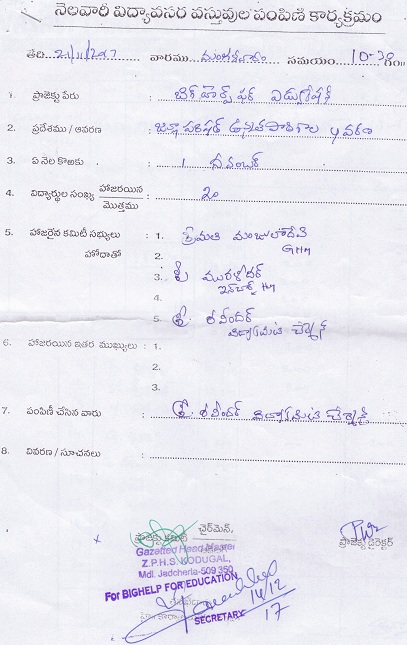 నెలవారీ విద్యావసర వస్తువుల పంపిణి కార్యక్రమం
తేది 21/11/2017 వారము మంగళవారం సమయం 10-30 గం
1. ప్రాజెక్టు పేరు : బిగ్ హెల్ప్ ఫర్ ఎడ్యుకేషన్
2. ప్రదేశము / ఆవరణ : జిల్లా పరిషత్ ఉన్నత పాఠశాల ఆవరణ
3. ఏ నెల కొఱకు : 1 నవంబర్
4. విద్యార్థుల సంఖ్య హాజరయిన / మొత్తము : 20
5. హాజరైన కమిటీ సభ్యులు : 1. శ్రీమతి మంజులాదేవి
హోదాతో GHM
2.
3. శ్రీ మురళీధర్
ఇన్‌చార్జ్ HM
4.
5. శ్రీ. రవీందర్
6. హాజరయిన ఇతర ముఖ్యులు : 1.
2.
3.
7. పంపిణీ చేసిన వారు : శ్రీ. రవీందర్
8. వివరణ / సూచనలు :
x ప్రాజెక్టు కమిటీ ఛైర్‌మెన్, ప్రాజెక్ట్ డైరెక్టర్
Gazetted Head Master
Z.P.H.S. KODUGAL,
Mdl. Jadcherla-509 350
For BIGHELP FOR EDUCATION
14/12
SECRETARY 17